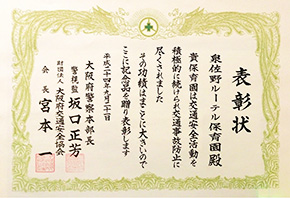 表彰状
泉佐野ルーテル保育園殿
貴保育園は交通安全活動を
積極的に続けられ交通事故防止に
尽くされました
その功績はまことに大きいので
ここに記念品を贈り表彰します
平成二十四年九月二十一日
大阪府警察本部長
警視監 坂口正芳
財団法人 大阪府交通安全協会
会長 宮本一